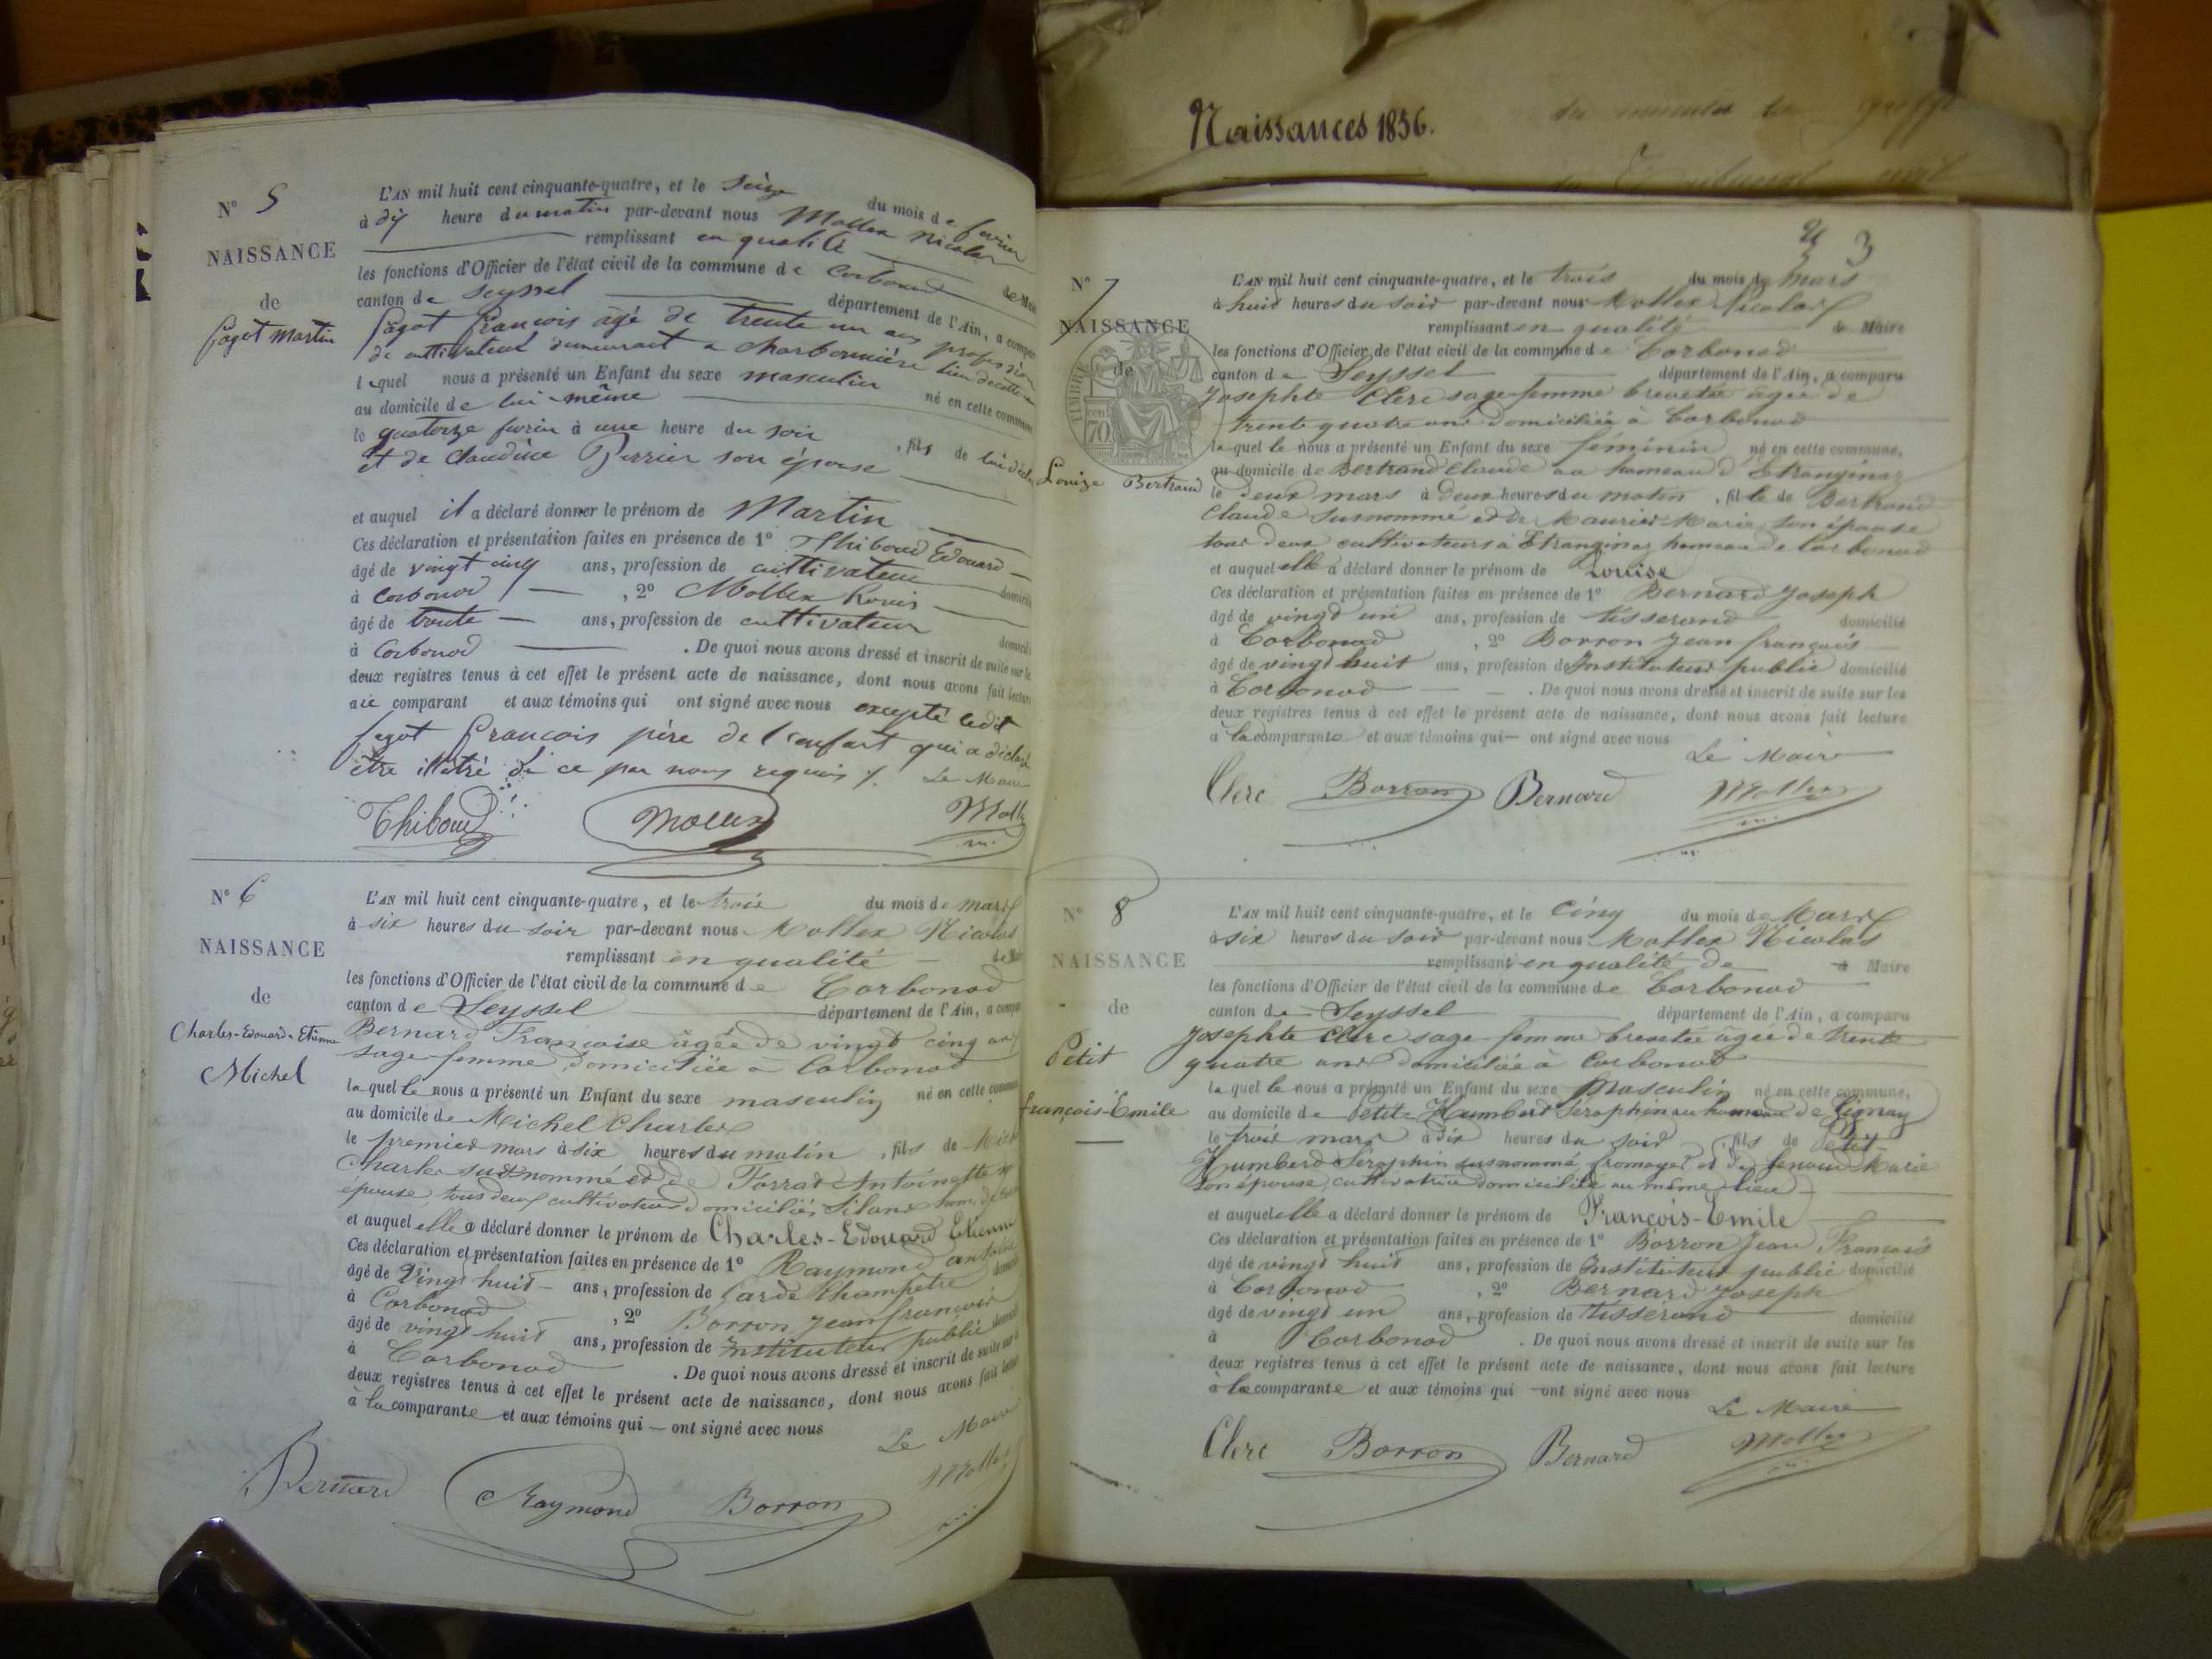 Naissances 1856.
N° 5
NAISSANCE
de
fagot Martin
L'AN mil huit cent cinquante-quatre, et le Seize du mois de fevrier
à dix heure du matin par-devant nous Mollex Nicolas
remplissant en qualité de Maire
les fonctions d'Officier de l'état civil de la commune de Corbonod
canton de Seyssel département de l'Ain, a comparu
fagot francois agé de trente un ans profession
de cultivateur demeurant a charbonnière lieu de cette
lequel nous a présenté un Enfant du sexe masculin né en cette commune
au domicile de lui-même
le quatorze fevrier à une heure du soir , fils de lui
et de claudine Perrier son épouse
et auquel il a déclaré donner le prénom de Martin
Ces déclaration et présentation faites en présence de 1° Thiboud Edouard
âgé de vingt cinq ans, profession de cultivateur domicilié
à Corbonod , 2° Mollex Louis
âgé de trente ans, profession de cultivateur domicilié
à Corbonod . De quoi nous avons dressé et inscrit de suite sur les
deux registres tenus à cet effet le présent acte de naissance, dont nous avons fait lecture
au comparant et aux témoins qui ont signé avec nous excepté ledit
fagot francois père de l'enfant qui a déclaré
être illétré de ce par nous requis /. Le Maire
Thiboud Mollex Mollex
N° 6
NAISSANCE
de
Charles-Edouard-Etienne
Michel
L'AN mil huit cent cinquante-quatre, et le trois du mois de mars
à six heures du soir par-devant nous Mollex Nicolas
remplissant en qualité de Maire
les fonctions d'Officier de l'état civil de la commune de Corbonod
canton de Seyssel département de l'Ain, a comparu
Bernard Françoise âgée de vingt cinq ans
sage-femme, domiciliée a Corbonod
laquelle nous a présenté un Enfant du sexe masculin né en cette commune
au domicile de Michel Charles
le premier mars à six heures du matin , fils de Michel
Charles susnommé et de Forrat Antoinette
épouse, tous deux cultivateurs domiciliés Silans
et auquel elle a déclaré donner le prénom de Charles-Edouard Etienne
Ces déclaration et présentation faites en présence de 1° Raymond antoine
âgé de vingt huit ans, profession de Garde Champêtre domicilié
à Corbonod , 2° Borron Jean françois
âgé de vingt huit ans, profession de Instituteur public domicilié
à Corbonod . De quoi nous avons dressé et inscrit de suite sur les
deux registres tenus à cet effet le présent acte de naissance, dont nous avons fait lecture
à la comparante et aux témoins qui ont signé avec nous
Le Maire
Bernard Raymond Borron Mollex
3
N° 7
NAISSANCE
de
TIMBRE
70
Louise Bertrand
L'AN mil huit cent cinquante-quatre, et le trois du mois de Mars
à huit heures du soir par-devant nous Mollex Nicolas
remplissant en qualité de Maire
les fonctions d'Officier de l'état civil de la commune de Corbonod
canton de Seyssel département de l'Ain, a comparu
Josephte Clerc sage-femme brevetée âgée de
trente quatre ans domiciliée à Corbonod
laquelle nous a présenté un Enfant du sexe féminin né en cette commune,
au domicile de Bertrand Claude au hameau d'Etranginaz
le deux mars à deux heures du matin , fille de Bertrand
Claude susnommé et de Maurier Marie son épouse
tous deux cultivateurs à Etranginaz hameau de Corbonod
et auquel elle a déclaré donner le prénom de Louise
Ces déclaration et présentation faites en présence de 1° Bernard Joseph
âgé de vingt un ans, profession de tisserand domicilié
à Corbonod , 2° Borron Jean françois
âgé de vingt huit ans, profession de Instituteur public domicilié
à Corbonod . De quoi nous avons dressé et inscrit de suite sur les
deux registres tenus à cet effet le présent acte de naissance, dont nous avons fait lecture
à la comparante et aux témoins qui ont signé avec nous
Le Maire
Clerc Borron Bernard Mollex
N° 8
NAISSANCE
de
Petit
françois-Emile
L'AN mil huit cent cinquante-quatre, et le Cinq du mois de Mars
à six heures du soir par-devant nous Mollex Nicolas
remplissant en qualité de Maire
les fonctions d'Officier de l'état civil de la commune de Corbonod
canton de Seyssel département de l'Ain, a comparu
Josephte Clerc sage-femme brevetée âgée de trente
quatre ans domiciliée à Corbonod
laquelle nous a présenté un Enfant du sexe Masculin né en cette commune,
au domicile de Petit Humbert Séraphin au hameau de Gignay
le trois mars à dix heures du soir , fils de Petit
Humbert Séraphin susnommé fromager et de fenoud Marie
son épouse, cultivatrice domiciliée au même lieu
et auquel elle a déclaré donner le prénom de François-Emile
Ces déclaration et présentation faites en présence de 1° Borron Jean François
âgé de vingt huit ans, profession de Instituteur public domicilié
à Corbonod , 2° Bernard Joseph
âgé de vingt un ans, profession de tisserand domicilié
à Corbonod . De quoi nous avons dressé et inscrit de suite sur les
deux registres tenus à cet effet le présent acte de naissance, dont nous avons fait lecture
à la comparante et aux témoins qui ont signé avec nous
Le Maire
Clerc Borron Bernard Mollex